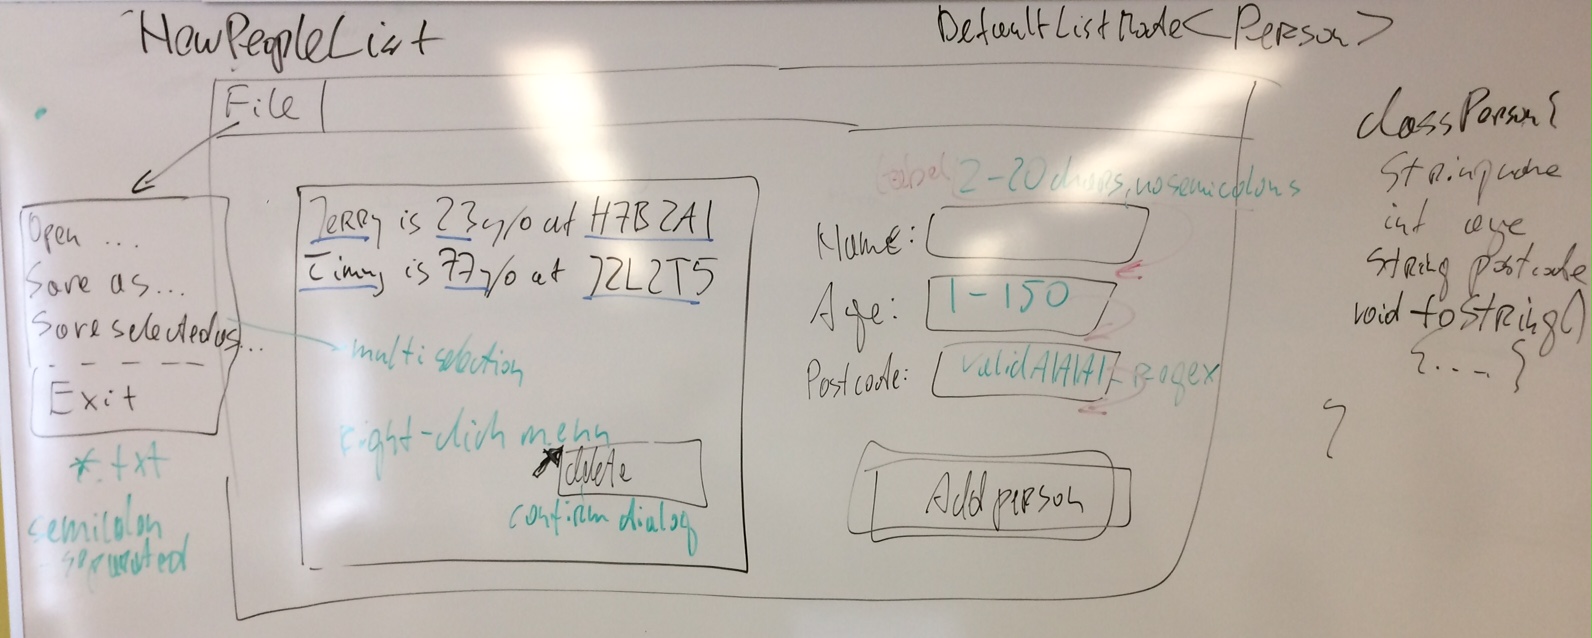 NewPeopleList
DefaultListMode<Person>
File
Open ...
Save as...
Save selected as...
Exit
*.txt
semicolon
separated
Jerry is 23 y/o at H7B2A1
Timmy is 77 y/o at J2L2T5
multi selection
right-click menu
delete
confirm dialog
label 2-20 chars, no semicolons
Name:
Age: 1-150
Postcode: valid A1A1A1 regex
Add person
class Person{
String name
int age
String postcode
void toString()
{....}
}